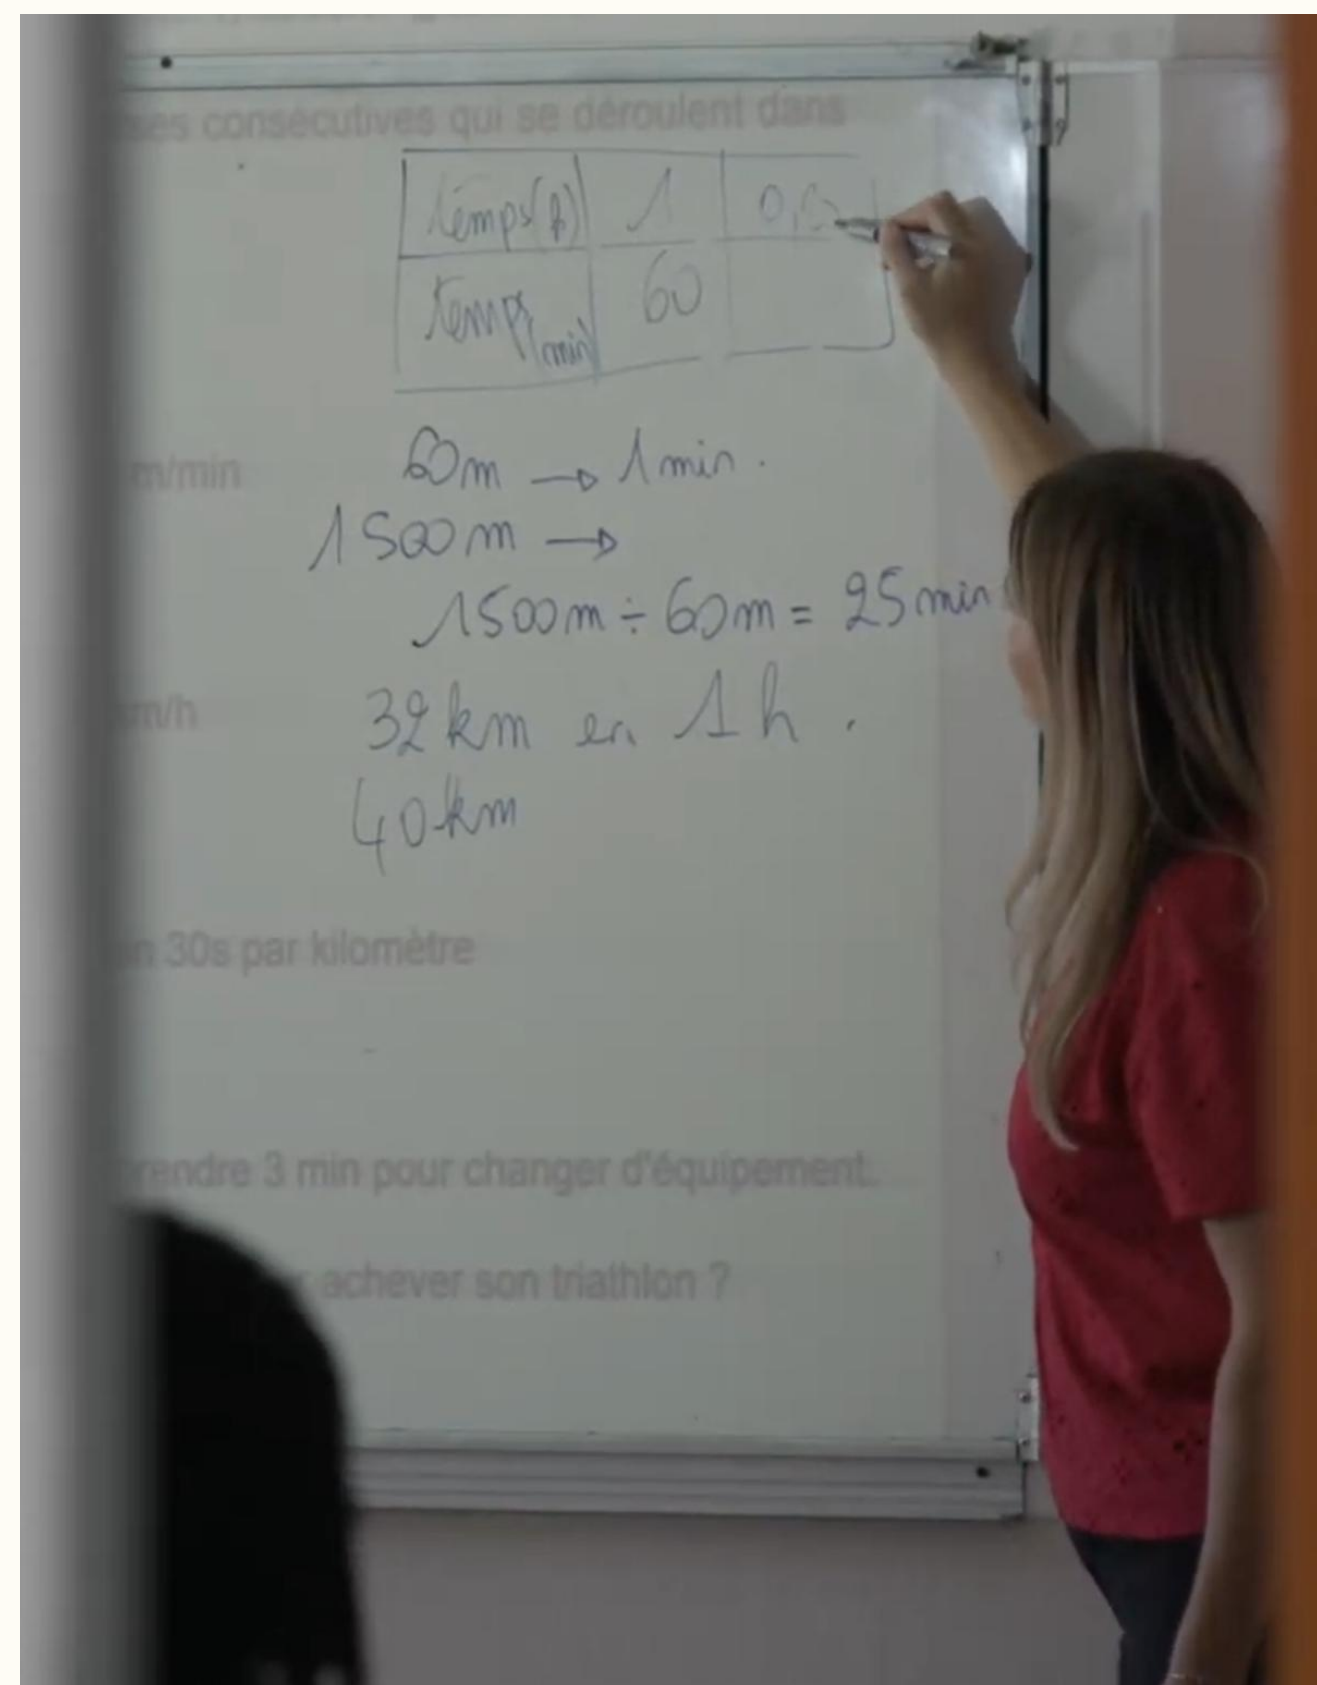 ses consécutives qui se déroulent dans
temps(h) 1
temps(min) 60
m/min
60m → 1min.
1500m →
1500m ÷ 60m = 25min
m/h
32km en 1h.
40km
30s par kilomètre
prendre 3 min pour changer d'équipement.
achever son triathlon ?